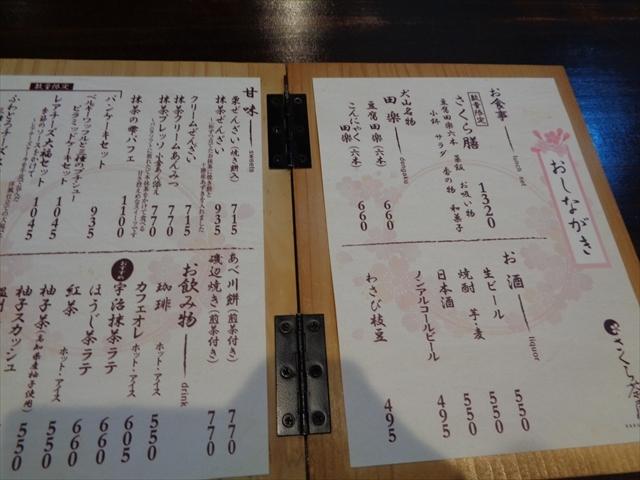 おしながき
お食事 lunch set
数量限定
さくら膳 1320
豆腐田楽六本 菜飯 お吸い物
小鉢 サラダ 香の物 和菓子
犬山名物
田楽 dengaku
豆腐田楽(六本) 660
こんにゃく田楽(六本) 660
お酒 liquor
生ビール 550
焼酎 芋・麦 550
日本酒 550
ノンアルコールビール 495
わさび枝豆 495
さくら茶
甘味 sweets
栗ぜんざい(焼き餅入) 715
抹茶ぜんざい 935
クリームぜんざい 715
抹茶クリームあんみつ 770
抹茶プレッソ 小倉あん添え 770
抹茶の雫パフェ 1100
数量限定
パンケーキセット 935
ベルギーワッフルと三種のプチシュー
ピラミッドケーキセット 1045
レアチーズ大福セット 1045
あべ川餅(煎茶付き) 770
磯辺焼き(煎茶付き) 770
お飲み物 drink
珈琲 ホット・アイス 550
カフェオレ ホット・アイス 605
おすすめ
宇治抹茶ラテ 660
ほうじ茶ラテ 660
紅茶 ホット・アイス 550
柚子茶(高知県産柚子使用) 550
柚子スカッシュ 550